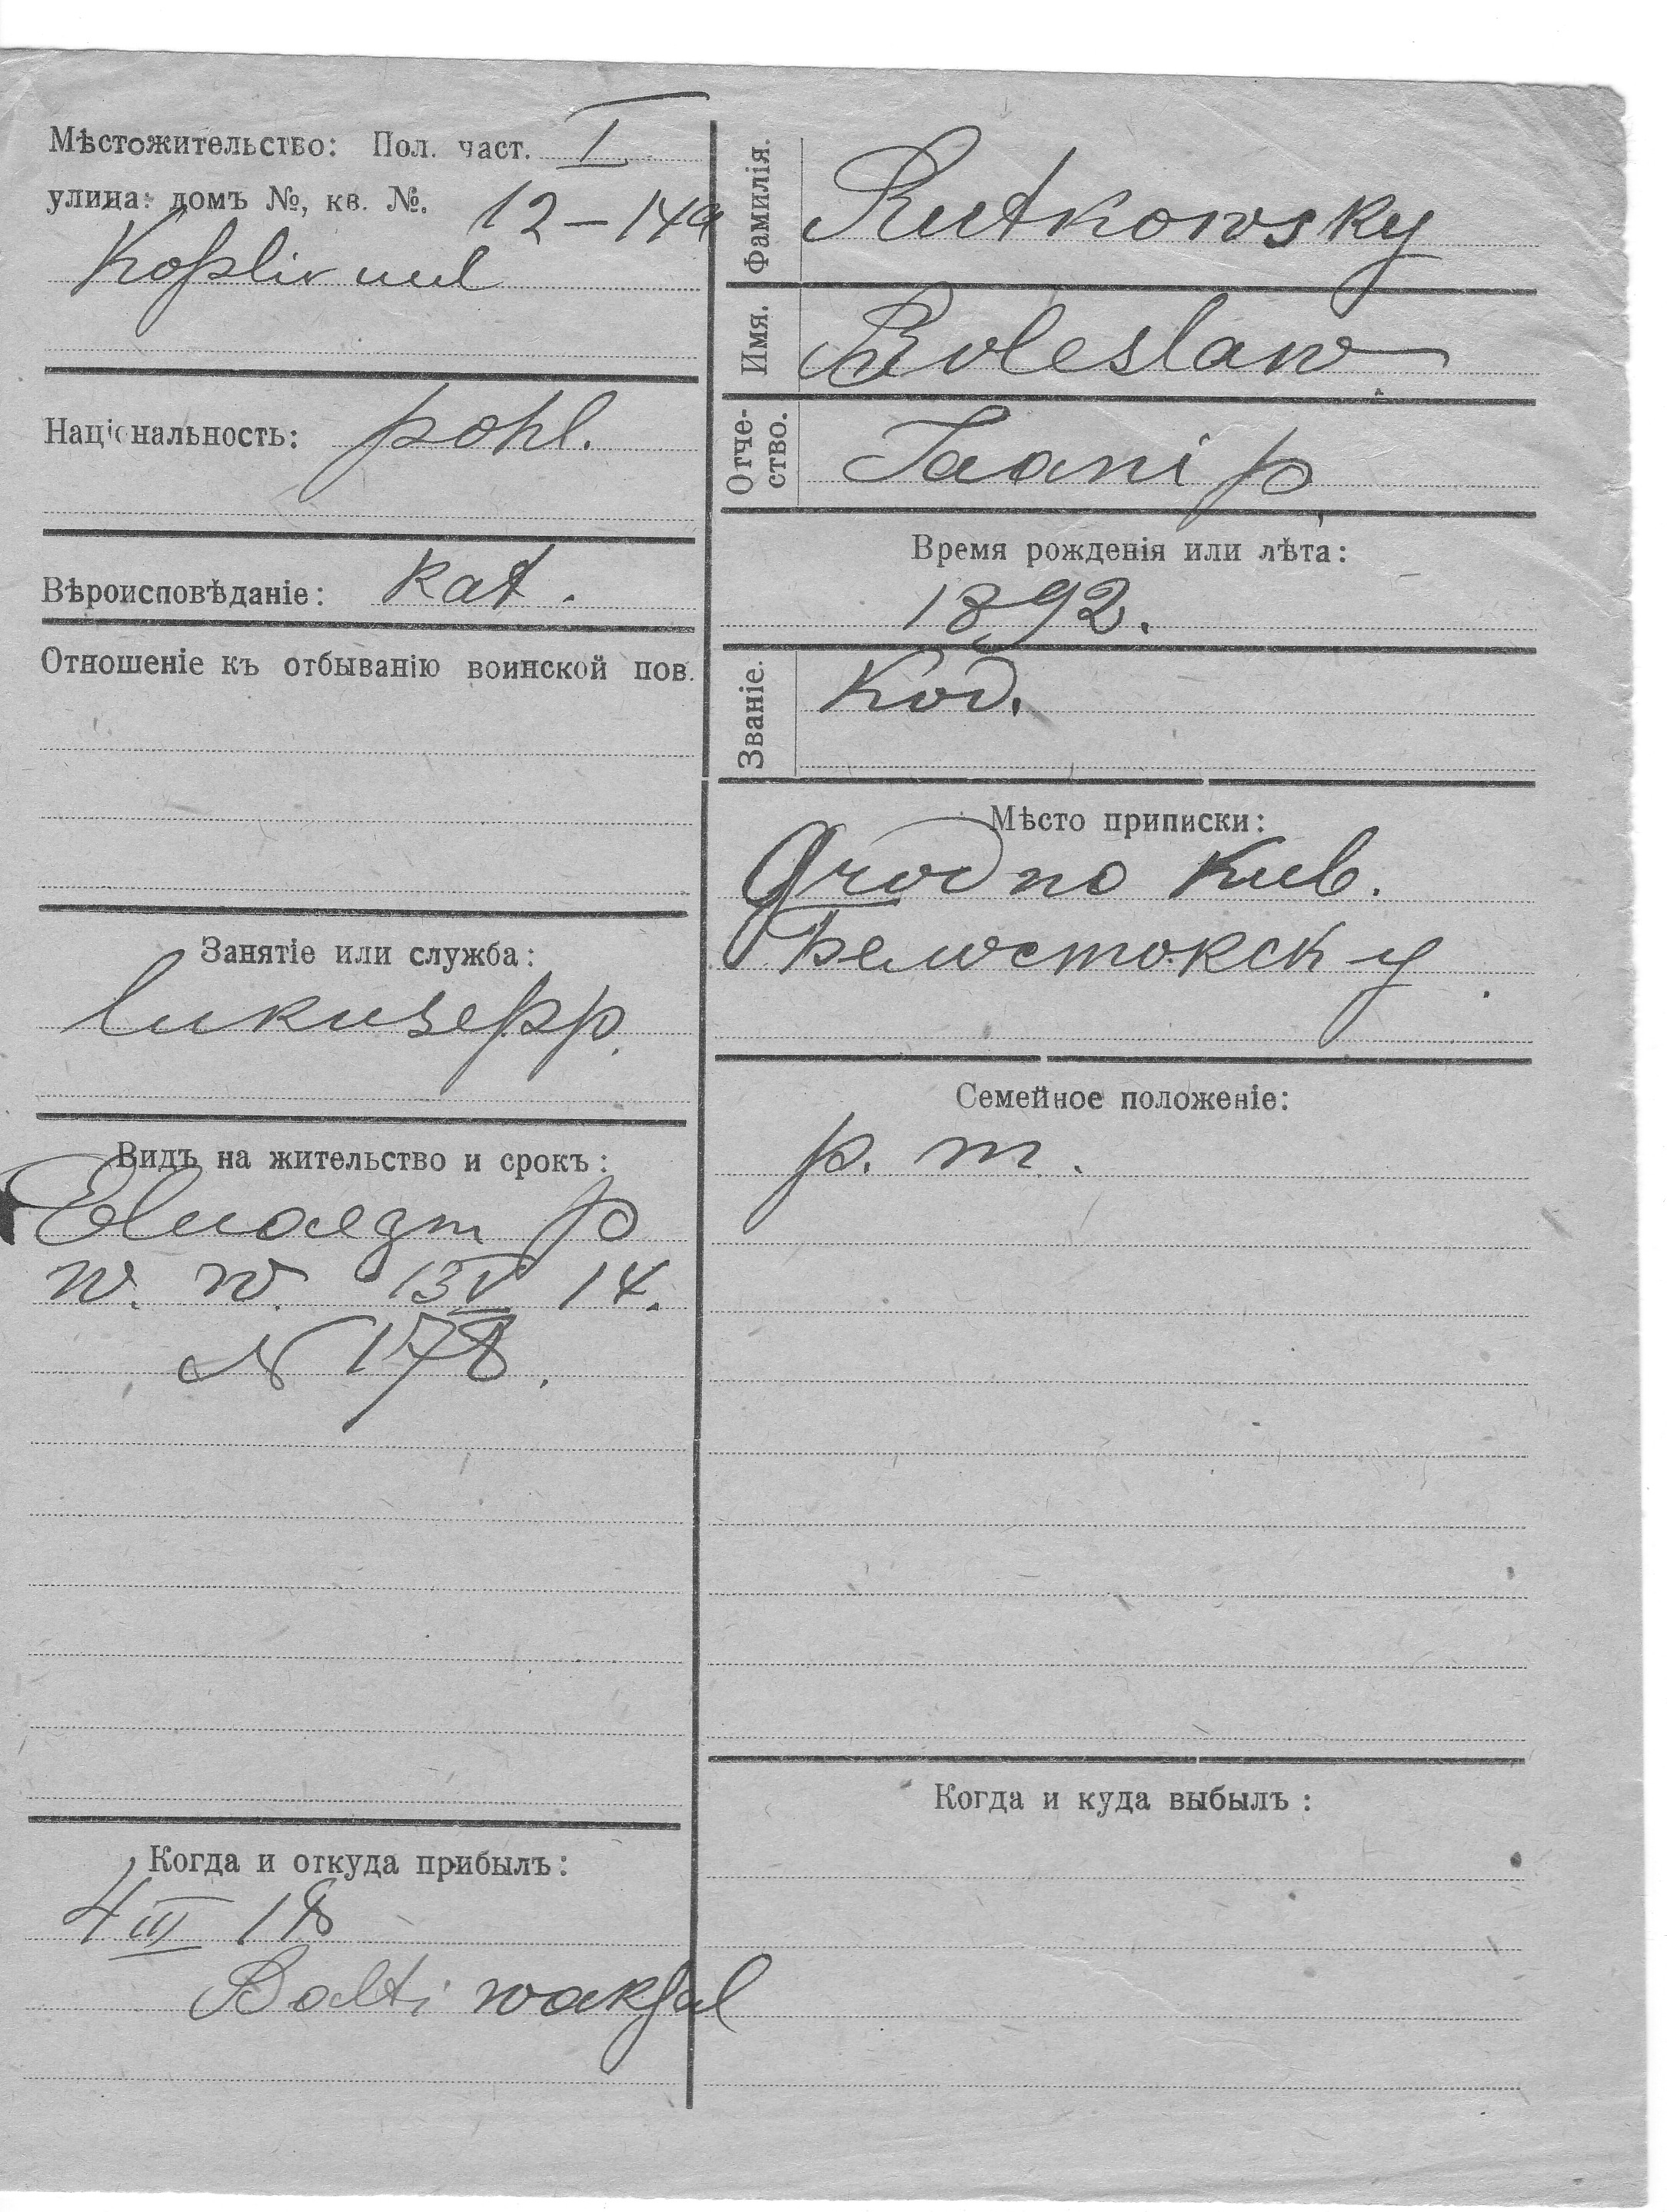 Мѣстожительство: Пол. част. I
улица: домъ №, кв. №. 12-149
Kopli uul
Національность: pohl.
Вѣроисповѣданіе: kat.
Отношеніе къ отбыванію воинской пов.
Занятіе или служба:
lukusepp
Видъ на жительство и срокъ:
Eluaegm p
w. w. 13 V 14.
N 178.
Когда и откуда прибылъ:
4 III 18
Balti waksal
Фамилія. Rutkowsky
Имя. Boleslaw
Отче-
ство. Jaani p
Время рожденія или лѣта:
1892.
Званіе. Kod.
Мѣсто приписки:
Grodno Kub.
Белостокск у.
Семейное положеніе:
p. m.
Когда и куда выбылъ: